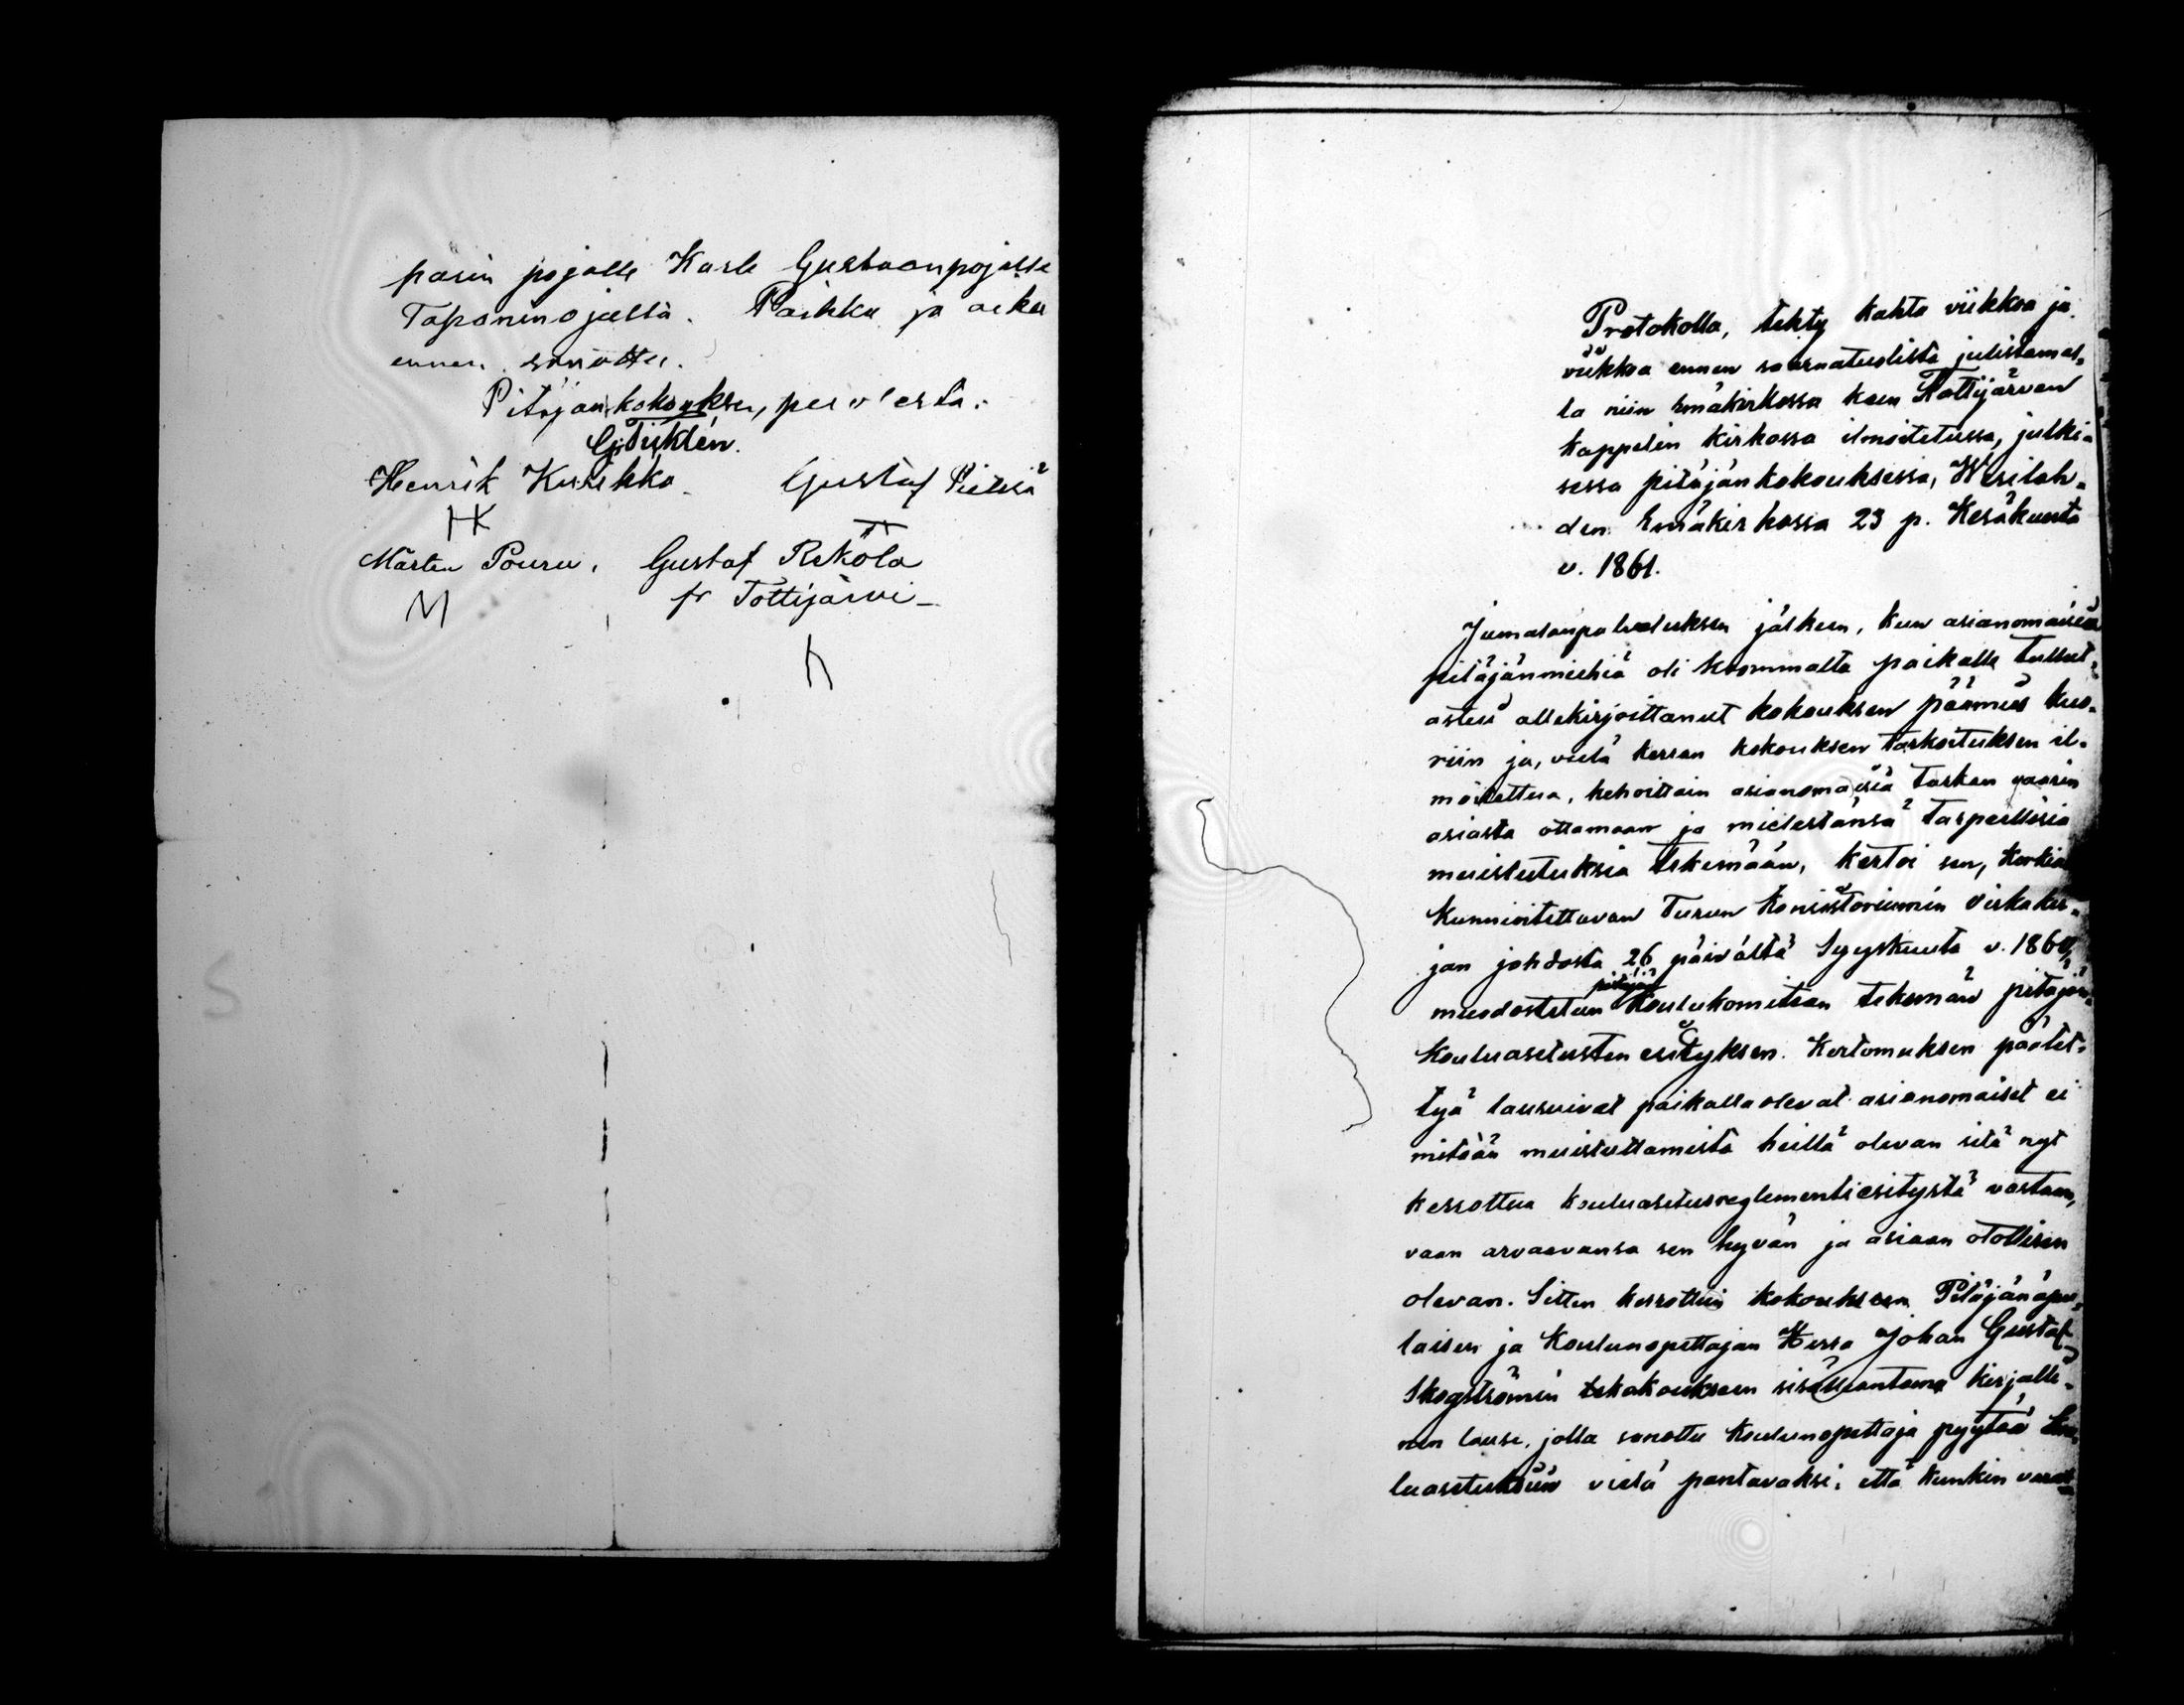 parin pojalle Karle Gustaanpojalle
Taponinojalla. Paikka ja aika
ennen sanottu.
Pitäjänkokouksen, puolesta:
G. Tiklén.
Henrik Kurikko Gustaf Pietilä
HK
Mårten Pouru. Gustaf Rekola
fr Tottijärvi
M
Protokolla, tehty kahta viikkoa ja
viikkoa ennen saarnatuolista julistamal-
la niin Emäkirkossa kuin Tottijärven
kappelin kirkossa ilmoitetussa, julki-
sessa pitäjänkokouksessa, Wesilah-
den Emäkirkossa 23 p. Kesäkuuta
v. 1861.
Jumalanpalveluksen jälkeen, kun asianomaisia
pitäjänmiehiä oli koommalta paikalle tullut,
astui allekirjoittanut kokouksen päämies kuo-
riin ja, vielä kerran kokouksen tarkoituksen il-
moitettua, kehoittain asianomaisia tarkan vaarin
asiasta ottamaan ja mielestänsä tarpeellisia
muistutuksia tekemään, kertoi sen, korkia
kunnioitettavan Turun Konsistoriumin virkakir-
jan johdosta 26 päivältä Syyskuuta v. 1860,
pitäjän
muodostetun Koulukomitean tekemän pitäjän-
kouluasetusten esityksen. Kertomuksen päätet-
tyä lausuivat paikallaolevat asianomaiset ei
mitään muistuttamista heillä olevan sitä nyt
kerrottua kouluasetusreglementiesitystä vastaan,
vaan arvaavansa sen hyvän ja asiaan otollisen
olevan. Sitten kerrottiin kokouksen Pitäjänapu-
laisen ja Koulunopettajan Herra Johan Gustaf
Skogströmin kokoukseen sisälleantama kirjalli-
nen lause, jolla sanottu koulunopettaja pyytää kou-
luasetuksiin vielä pantavaksi: että kunkin